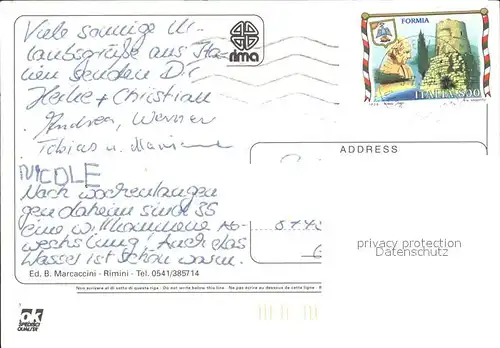 Viele sonnige Ur-
laubsgrüße aus Ita-
lien senden Dir
Heike + Christian
Andrea, Werner
Tobias u. Marianne
NICOLE
Nach wochenlangen
gen daheim sind 35
eine willkommene Ab-
wechslung! Auch das
Wasser ist schön warm.
rima
FORMIA
ITALIA 800
ADDRESS
privacy protection
Datenschutz
Ed. B. Marcaccini - Rimini - Tel. 0541/385714
Non scrivere al di sotto di questa riga - Do not write below this line - Ne pas écrire au dessous de cette ligne
ok
SPEDISCI
QUALITÀ